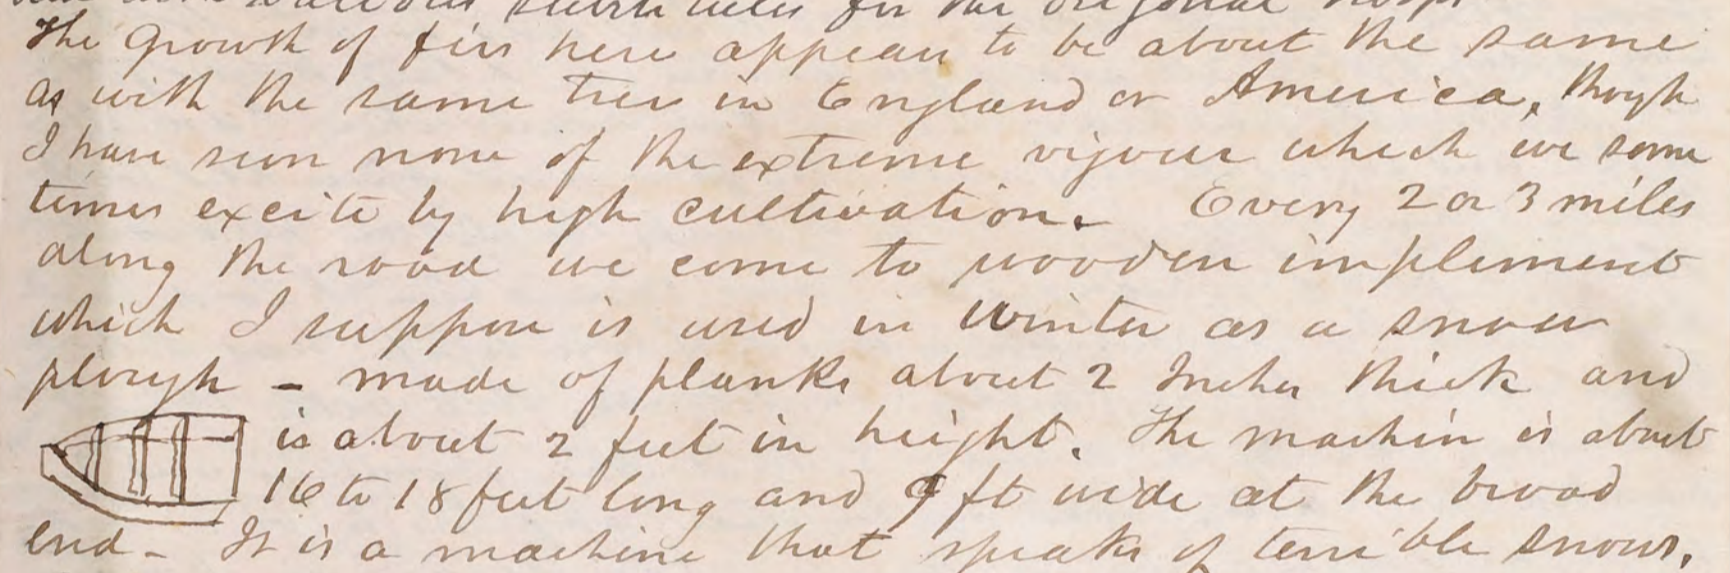 substitutes for the original
The growth of firs here appear to be about the same
as with the same tree in England or America, though
I have seen none of the extreme vigour which we some
times excite by high cultivation. Every 2 or 3 miles
along the road we come to wooden implement
which I suppose is used in winter as a snow
plough - made of planks about 2 Inches thick and
is about 2 feet in height. The machin is about
16 to 18 feet long and 9 ft wide at the broad
end - It is a machine that speaks of terrible snows.